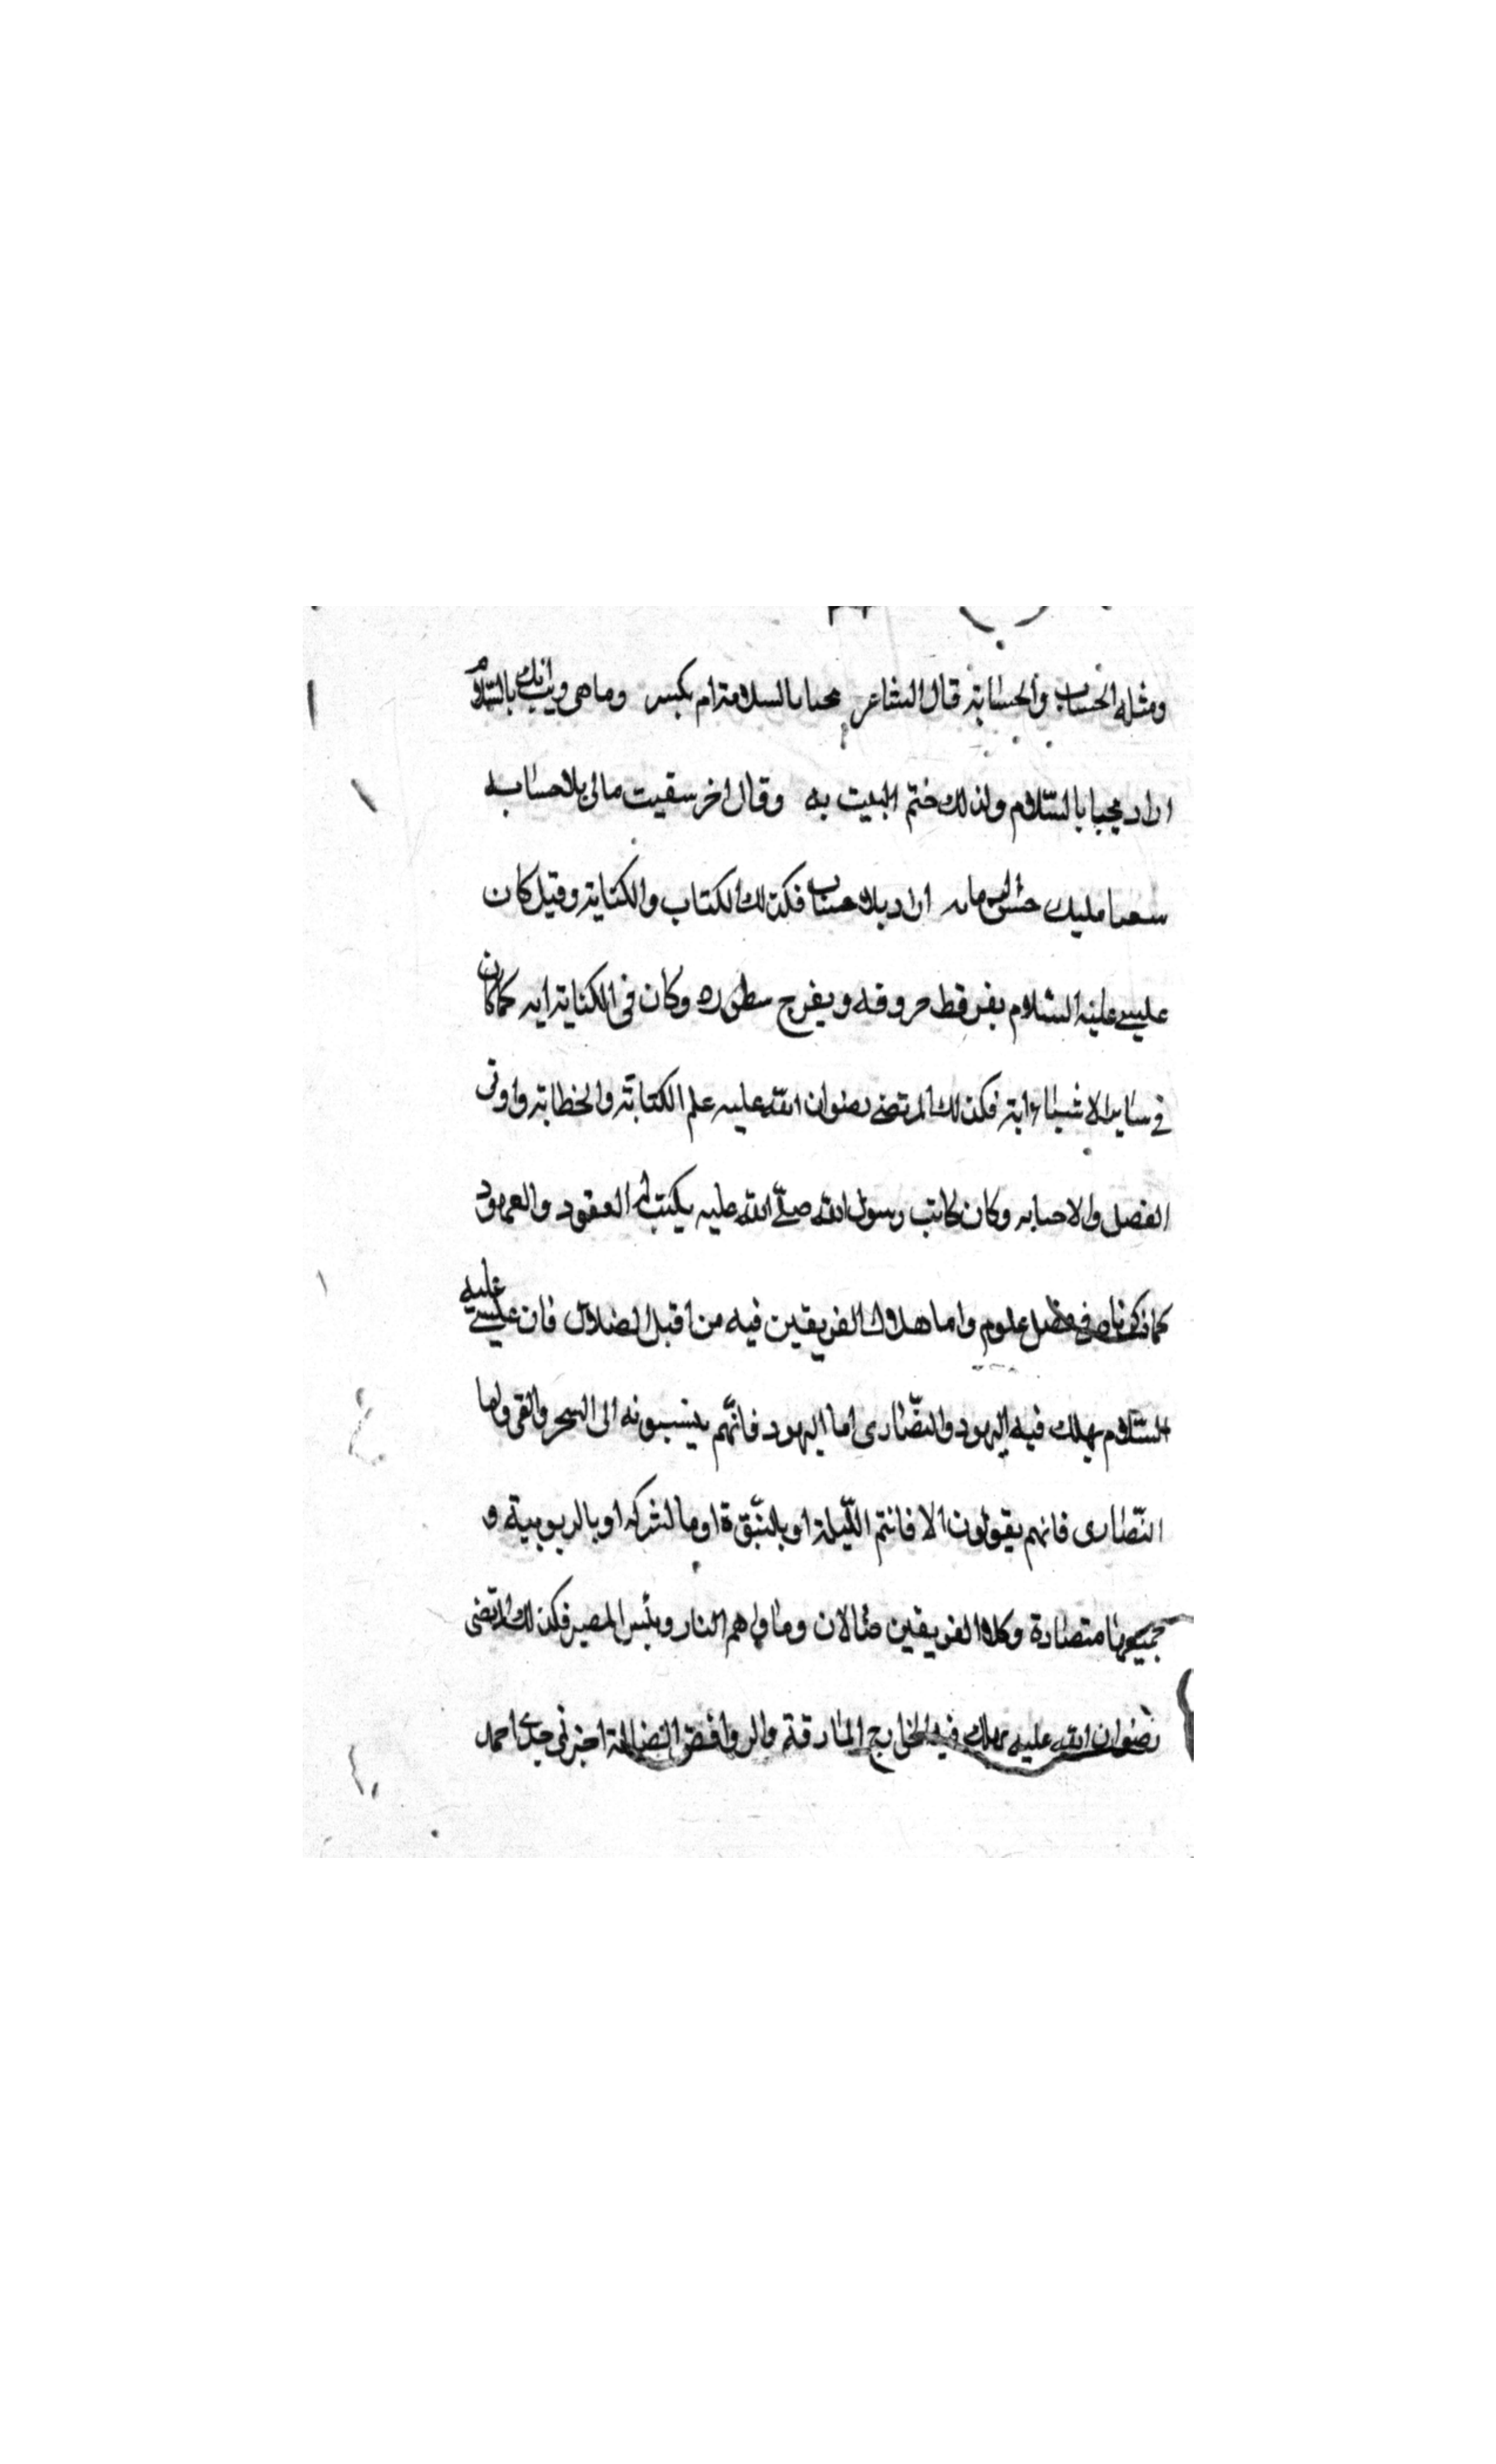 ومثله الحساب والحسابة قال الشاعر محيابالسلامة ام بكر وما هي وبانك بالسلام
اراد محيابالسلام ولذلك ختم البيت به وقال اخر سقيت مالي بلاحسابه
مليك اراد بلاحساب فكذلك الكتاب والكتابة وقيل كان
عليسے عليه السلام يفرقط حروفه ويفرج سطوره وكان في الكتابة ايه كما كان
في ساير الاشياء اية فكذلك المرتضى رضوان الله عليه علم الكتابة والخطابة واوتى
الفصل والاصابه وكان كاتب رسول الله صلى الله عليه يكتب له العقود والعهود
كما ذكرناه في فصل علوم واما هلاك الفريقين فيه من قبل الضلال فان عليسے عليه
السلام يهلك فيه اليهود والنصارى اما اليهود فانهم ينسبونه الى السحر
النصارى فانهم يقولون الا فانتم اوبالنبوة اوبالربوبية و
جميعها متضادة وكلا الفريقين ضالان وماويهم النار وبئس المصير فكذلك المرتضى
رضوان الله عليه يهلك فيه الخارج المارقة والروافض الضالة اخبرني جدي احمد